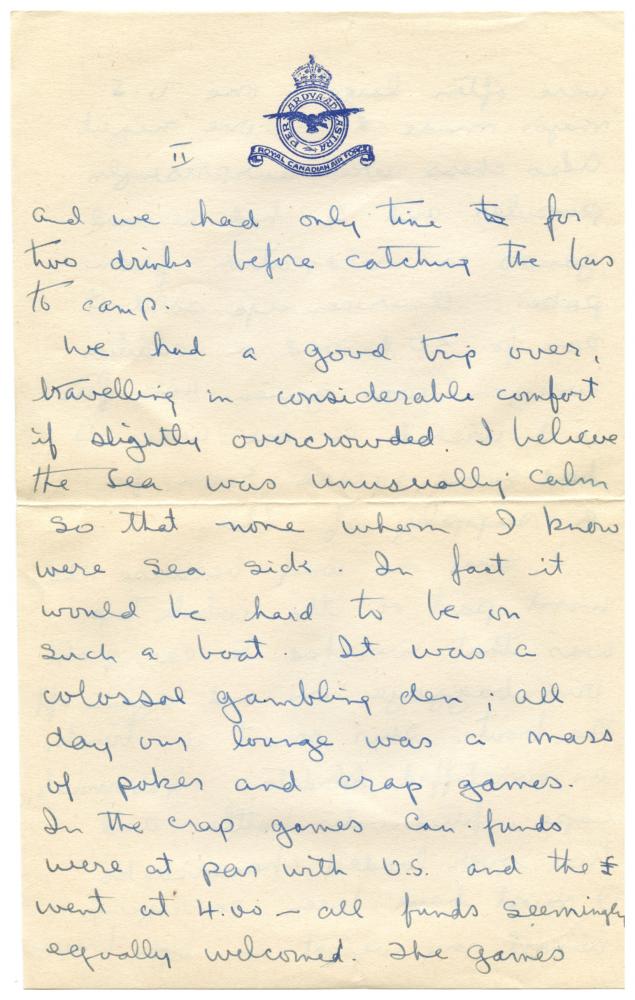 PER ARDVA AD ASTRA
ROYAL CANADIAN AIR FORCE
II
and we had only time to for
two drinks before catching the bus
to camp.
We had a good trip over,
travelling in considerable comfort
if slightly overcrowded. I believe
the sea was unusually calm
so that none whom I know
were sea sick. In fact it
would be hard to be on
such a boat. It was a
colossal gambling den; all
day our lounge was a mass
of poker and crap games.
In the crap games Can. funds
were at par with U.S. and the £
went at 4.00 – all funds seemingly
equally welcomed. The games